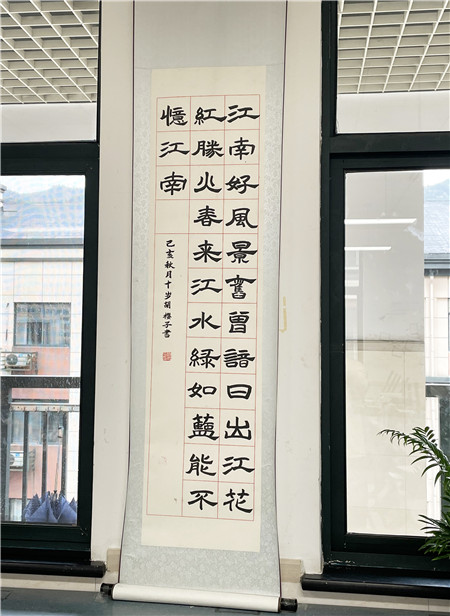 江南好風景舊曾諳日出江花
紅勝火春来江水緑如藍能不
憶江南
己亥秋月十岁胡樱子書